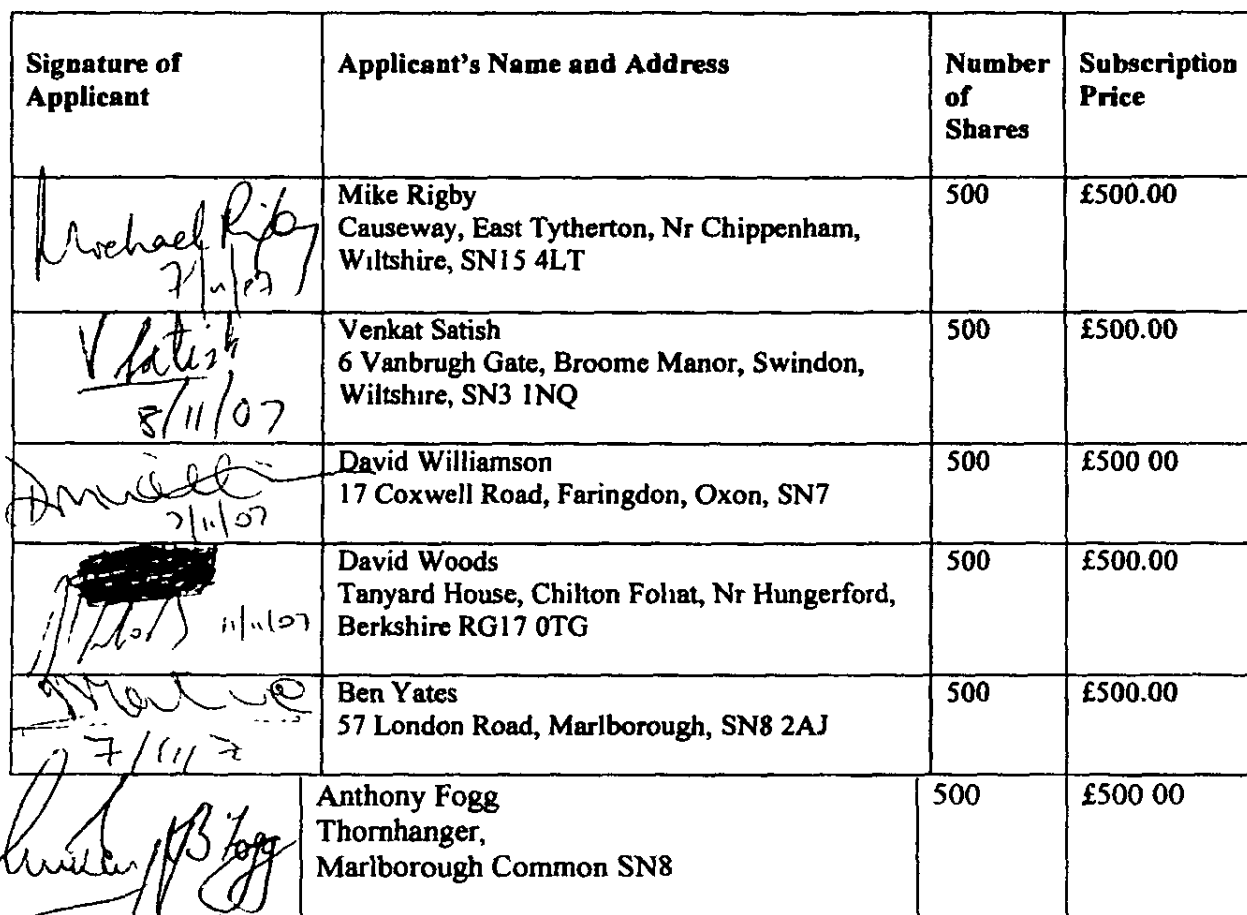 Signature of Applicant
Applicant's Name and Address
Number of Shares
Subscription Price
Michael Rigby
7/11/07
Mike Rigby
Causeway, East Tytherton, Nr Chippenham,
Wiltshire, SN15 4LT
500
£500.00
V Satish
8/11/07
Venkat Satish
6 Vanbrugh Gate, Broome Manor, Swindon,
Wiltshire, SN3 1NQ
500
£500.00
7/11/07
David Williamson
17 Coxwell Road, Faringdon, Oxon, SN7
500
£500 00
11/11/07
David Woods
Tanyard House, Chilton Foliat, Nr Hungerford,
Berkshire RG17 0TG
500
£500.00
7/11/7
Ben Yates
57 London Road, Marlborough, SN8 2AJ
500
£500.00
B Fogg
Anthony Fogg
Thornhanger,
Marlborough Common SN8
500
£500 00